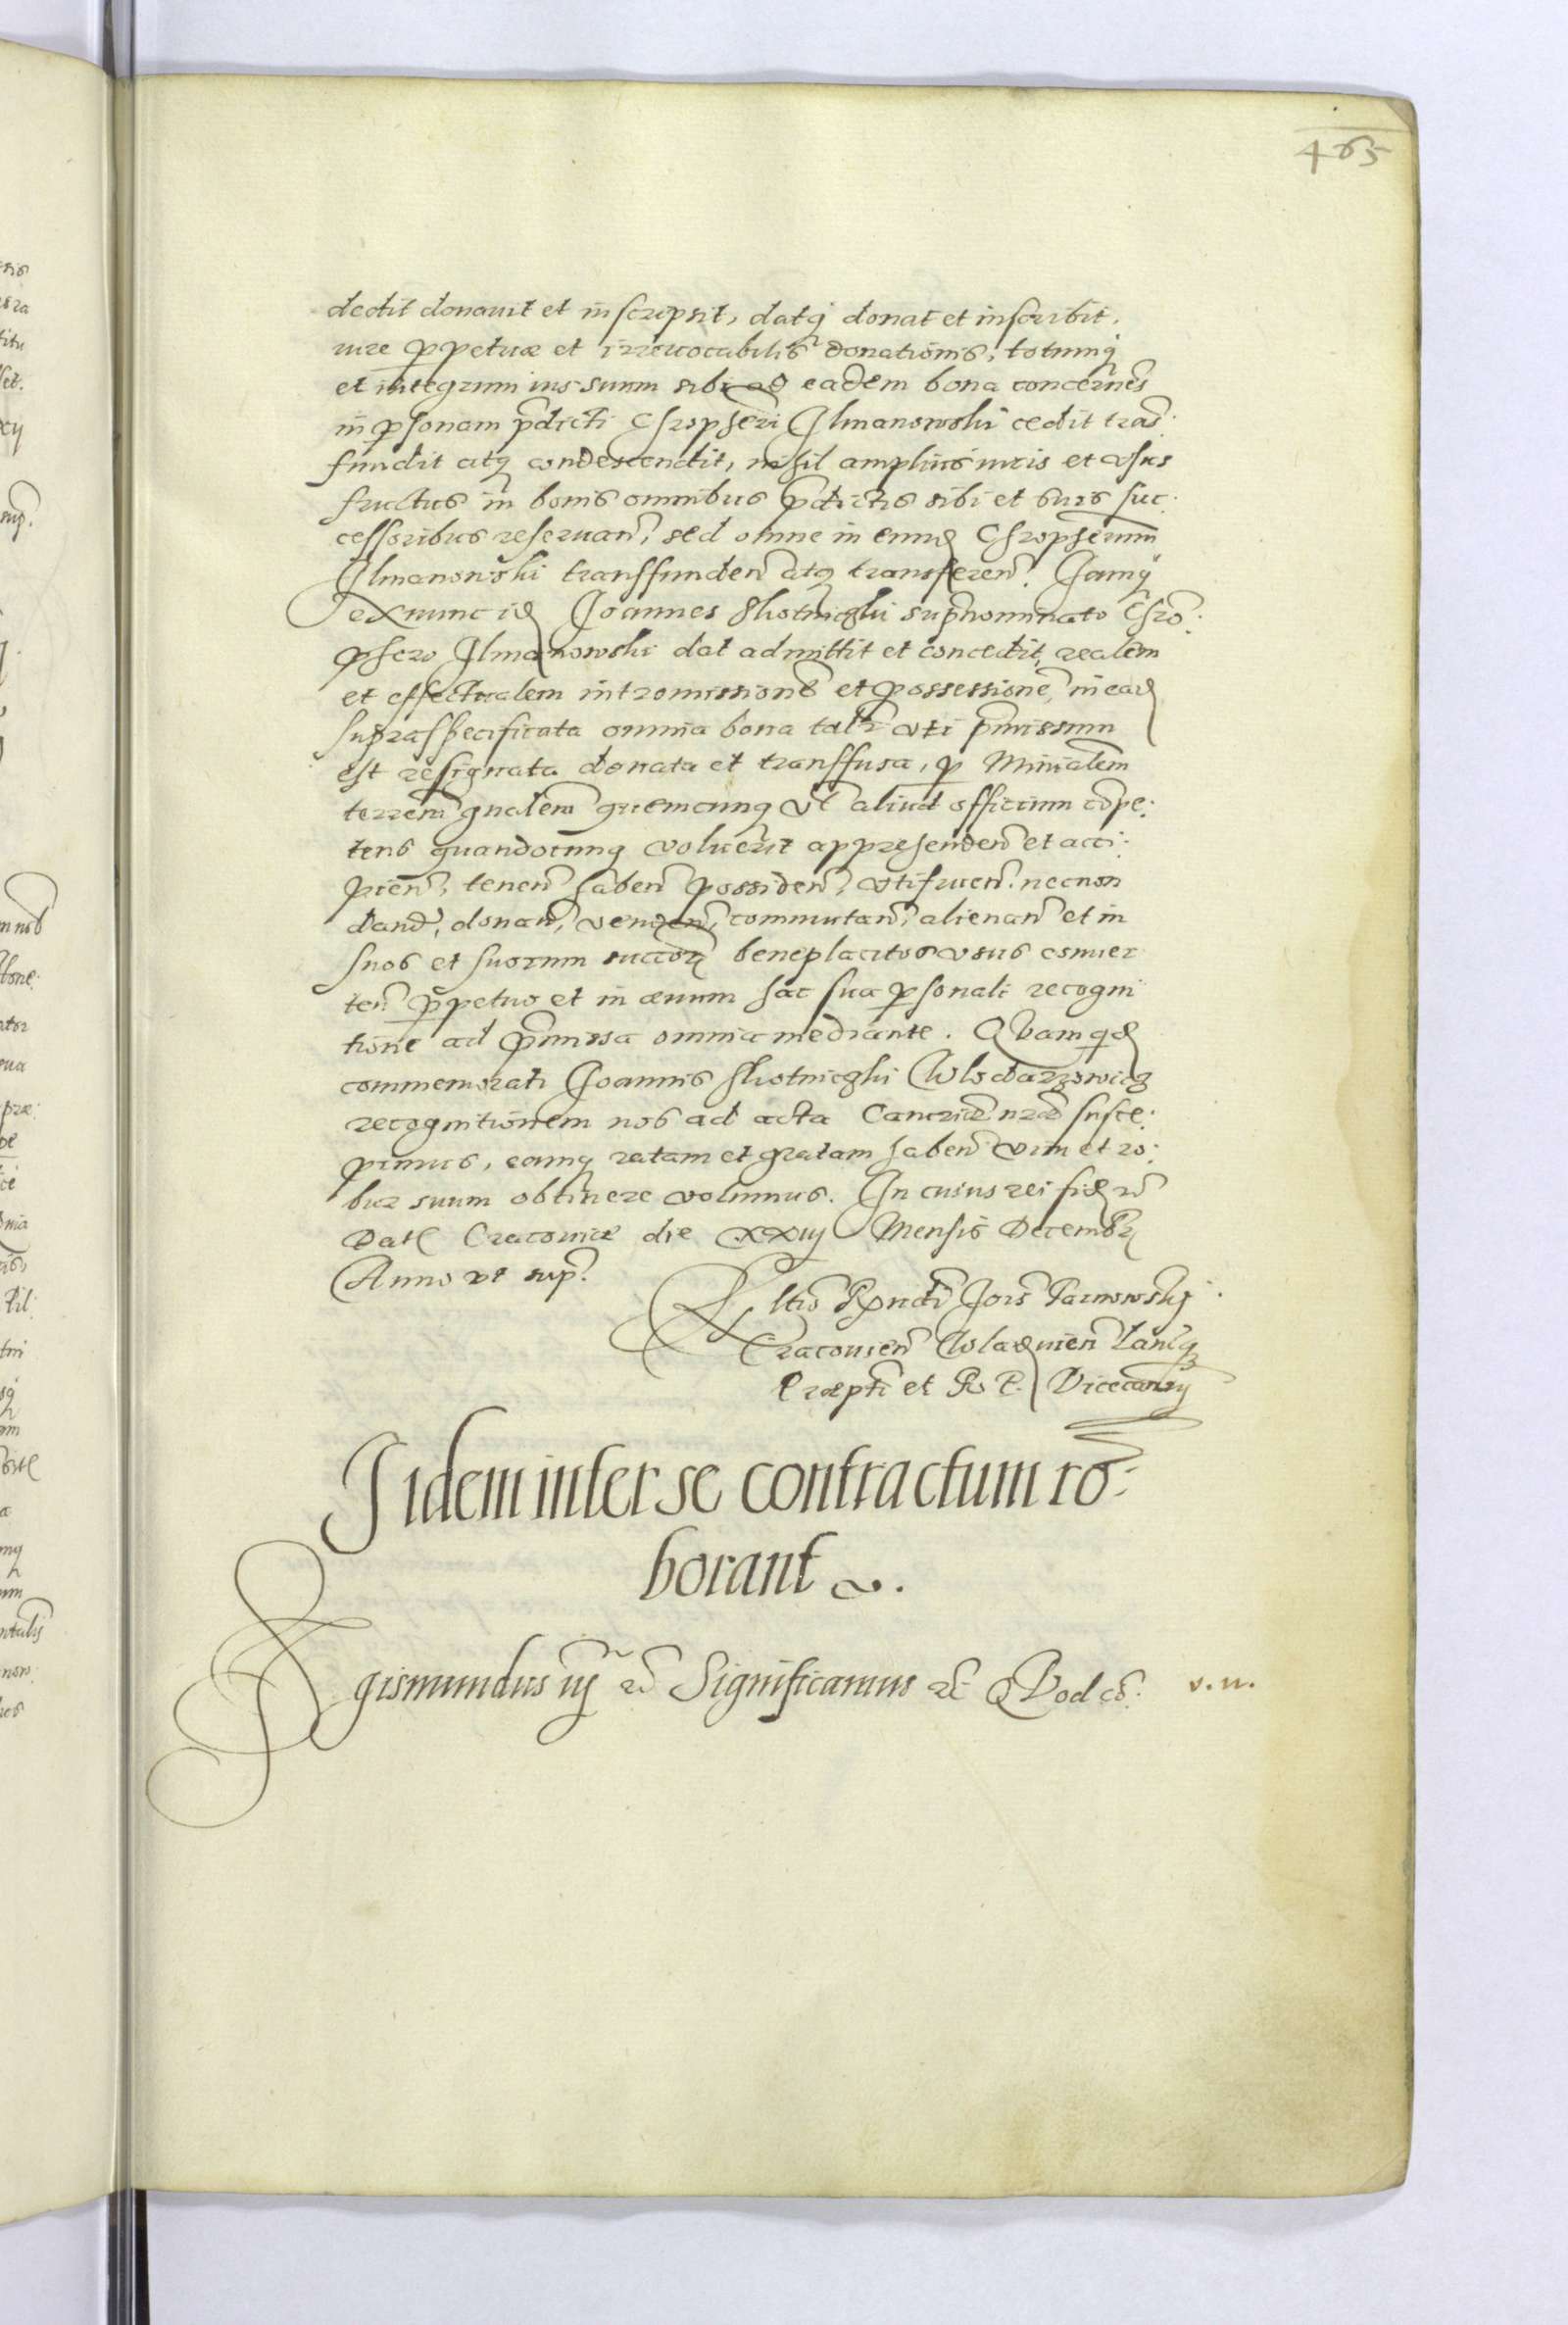 465
dedit donauit et inscripsit, datq donat et inscribit.
iure ppetuæ et irreuocabilis donationis, totumq
et integrum ius suum sibi ad eadem bona concernes
in psonam pdicti Chropseni Ilmanowski cedit tras
fundit atq condescendit, nihil amplius iuris et vsus
fructus in bonis omnibus pdictis sibi et suis suc
cessoribus reseruan, sed omne in eund Chropsenum
Ilmanowski transfunden atq transferen. Iamq
ex nunc id Joannes Skotniczki supnominato Chro
psero Ilmanowski dat admittit et concedit, realem
et effectualem intromissione et possessione, in ead
supraspecificata omnia bona talr vti pmissum
est resignata donata et transfusa, p Minialem
terrem gnalem quemcunq vel aliud officium cope
tens quandocunq voluerit apprehenden et acci
pien, tenen haben possiden, vtifruen. necnon
dand, donan, venden, commutan, alienan et in
suos et suorum succor beneplacitos vsus conuer
ten ppetuo et in æuum hac sua psonali recogni
tione ad pmissa omnia mediante. Quamqd
commemorati Joannis Skotniczki Wlodarzowicz
recognitionem nos ad acta Cancriæ nræ susce
pimus, eamq ratam et gratam haben vim et ro
bur suum obtinere volumus. In cuius rei fid rc
Dat Cracouiæ die xxiij Mensis Decembr
Anno vt sup.
Rltio Rndi Jois Tarnowskj
Cracouien Wladuien Lancq
Præpti et R P. Vicecancrij
Iidem inter se contractum ro
borant
Sigismundus iij rc Significamus rc Quod co. v. n.